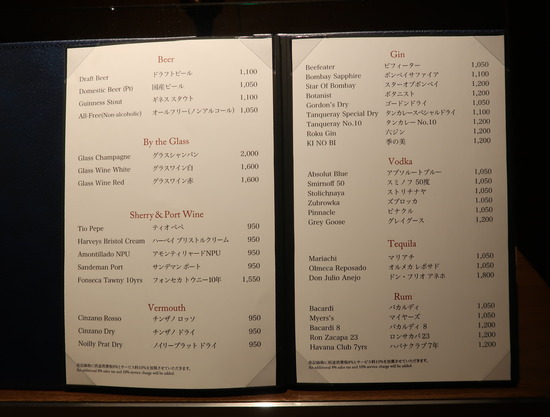 Beer
Draft Beer ドラフトビール 1,100
Domestic Beer (Pt) 国産ビール 1,050
Guinness Stout ギネス スタウト 1,100
All-Free(Non-alcoholic) オールフリー(ノンアルコール) 1,050
By the Glass
Glass Champagne グラスシャンパン 2,000
Glass Wine White グラスワイン白 1,600
Glass Wine Red グラスワイン赤 1,600
Sherry & Port Wine
Tio Pepe ティオ ペペ 950
Harveys Bristol Cream ハーベイ ブリストルクリーム 950
Amontillado NPU アモンティリャードNPU 950
Sandeman Port サンデマン ポート 950
Fonseca Tawny 10yrs フォンセカ トウニー10年 1,550
Vermouth
Cinzano Rosso チンザノ ロッソ 950
Cinzano Dry チンザノ ドライ 950
Noilly Prat Dry ノイリープラット ドライ 950
An additional 8% sales tax and 10% service charge will be added.
Gin
Beefeater ビフィーター 1,050
Bombay Sapphire ボンベイサファイア 1,100
Star Of Bombay スターオブボンベイ 1,200
Botanist ボタニスト 1,200
Gordon's Dry ゴードンドライ 1,050
Tanqueray Special Dry タンカレースペシャルドライ 1,100
Tanqueray No.10 タンカレー No.10 1,200
Roku Gin 六ジン 1,200
KI NO BI 季の美 1,200
Vodka
Absolut Blue アブソルートブルー 1,050
Smirnoff 50 スミノフ 50度 1,050
Stolichnaya ストリチナヤ 1,050
Zubrowka ズブロッカ 1,050
Pinnacle ピナクル 1,050
Grey Goose グレイグース 1,200
Tequila
Mariachi マリアチ 1,050
Olmeca Reposado オルメカ レポサド 1,050
Don Julio Anejo ドン・フリオ アネホ 1,800
Rum
Bacardi バカルディ 1,050
Myers's マイヤーズ 1,050
Bacardi 8 バカルディ 8 1,200
Ron Zacapa 23 ロンサカパ 23 1,200
Havana Club 7yrs ハバナクラブ 7年 1,200
An additional 8% sales tax and 10% service charge will be added.